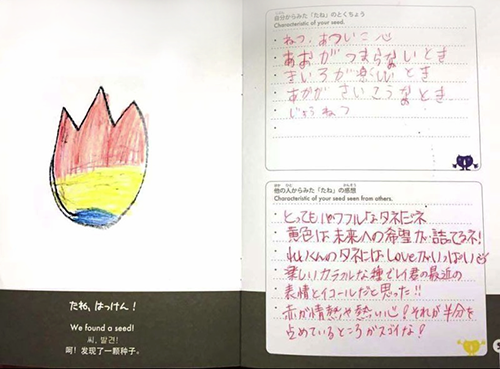 たね、はっけん!
We found a seed!
씨, 발견!
呵! 发现了一颗种子。
自分からみた「たね」のとくちょう
Characteristic of your seed.
・ねつ、あついこ心
・あおが つまらないとき
・きいろが楽しむ とき
・あかが さいこうなとき
・じょうねつ
他の人からみた「たね」の感想
Characteristic of your seed seen from others.
・とってもパワフルなタネだネ
・黄色は未来への希望が詰ってるネ!
・れいくんのタネにはLoveがいっぱい
・楽しいカラフルな種でレイ君の最近の
表情とイコールだと思った!!
・赤が情熱や熱い心!それが半分を
占めているところがスゴイな!